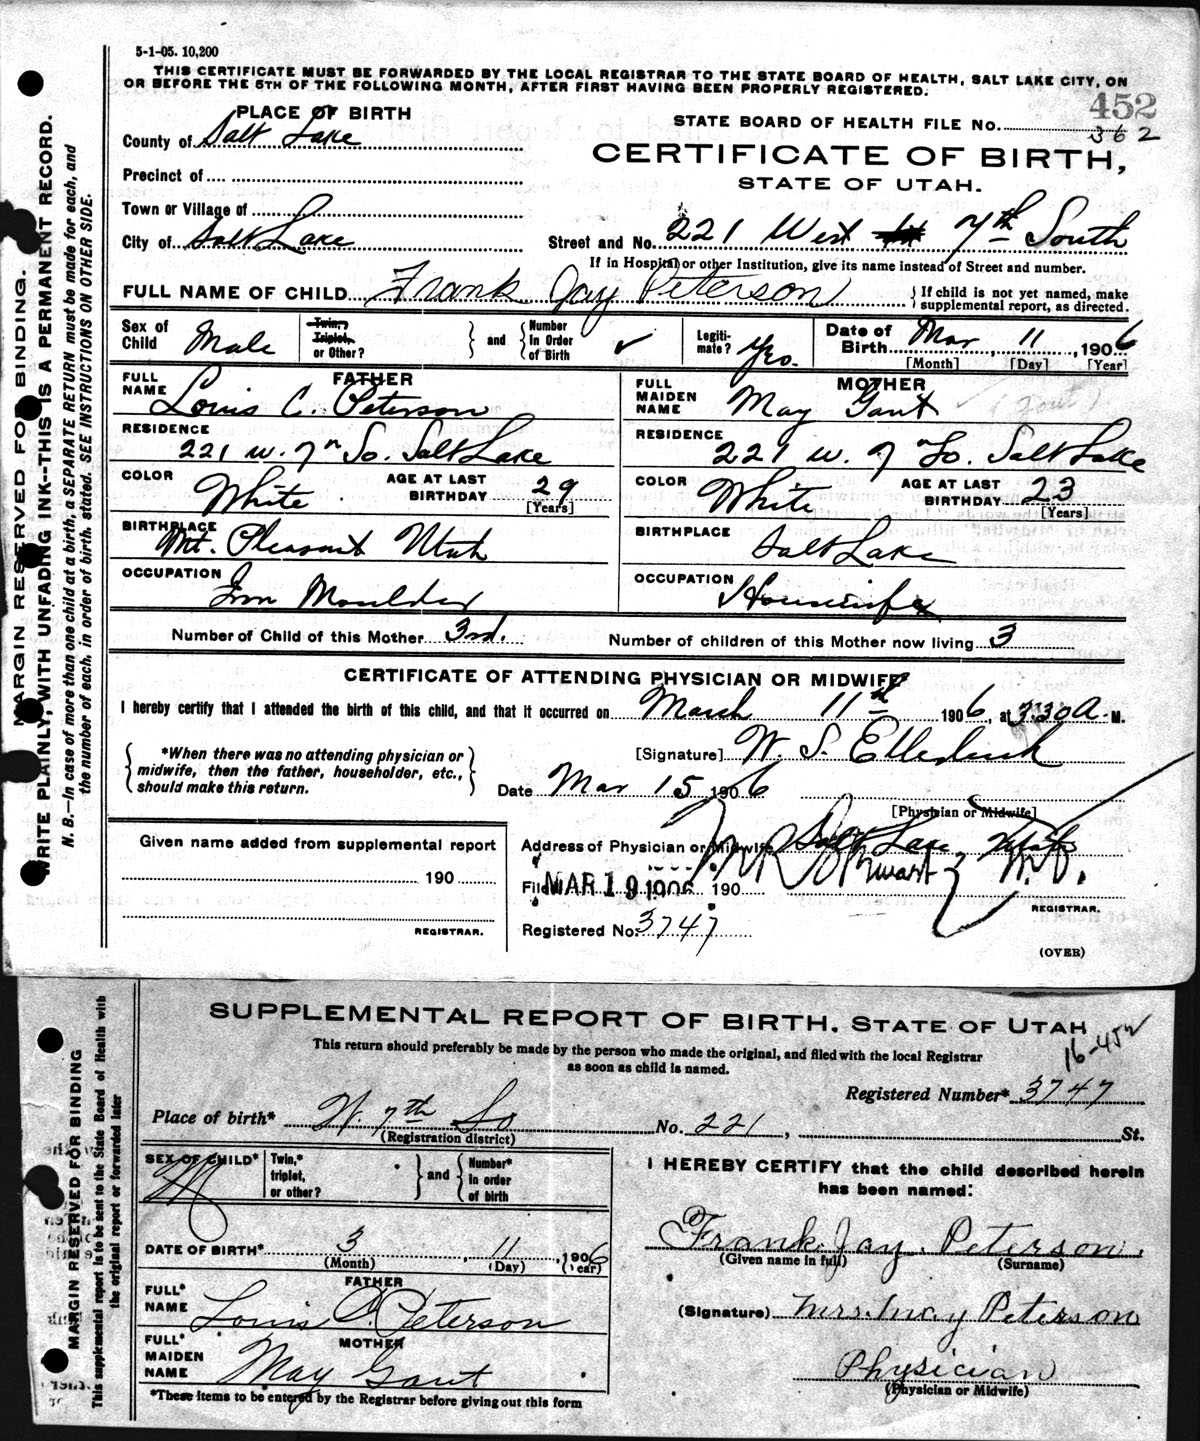 5-1-05. 10,200
THIS CERTIFICATE MUST BE FORWARDED BY THE LOCAL REGISTRAR TO THE STATE BOARD OF HEALTH, SALT LAKE CITY, ON
OR BEFORE THE 5TH OF THE FOLLOWING MONTH, AFTER FIRST HAVING BEEN PROPERLY REGISTERED.
452
PLACE OF BIRTH
STATE BOARD OF HEALTH FILE No. 362
County of Salt Lake
CERTIFICATE OF BIRTH,
STATE OF UTAH.
Precinct of
Town or Village of
City of Salt Lake
Street and No. 221 West 7th South
If in Hospital or other Institution, give its name instead of Street and number.
FULL NAME OF CHILD Frank Jay Peterson
{If child is not yet named, make
supplemental report, as directed.
Sex of
Child Male
Twin,
Triplet,
or Other?
} and {
Number
In Order
of Birth ✓
Legiti-
mate? Yes.
Date of
Birth Mar, 11, 1906
[Month] [Day] [Year]
FATHER
FULL
NAME Louis C. Peterson
RESIDENCE
221 W. 7th So. Salt Lake
COLOR White
AGE AT LAST
BIRTHDAY 29
[Years]
BIRTHPLACE
Mt. Pleasant Utah
OCCUPATION Iron Moulder
MOTHER
FULL
MAIDEN
NAME May Gant
RESIDENCE
221 W. 7 So. Salt Lake
COLOR White
AGE AT LAST
BIRTHDAY 23
[Years]
BIRTHPLACE
Salt Lake
OCCUPATION Housewife
Number of Child of this Mother 3rd.
Number of children of this Mother now living 3
CERTIFICATE OF ATTENDING PHYSICIAN OR MIDWIFE*
I hereby certify that I attended the birth of this child, and that it occurred on March 11 1906, at 3.30 A. M.
{*When there was no attending physician or
midwife, then the father, householder, etc.,
should make this return.}
[Signature] W. S.
Date Mar 15 1906
[Physician or Midwife]
Given name added from supplemental report
190
REGISTRAR.
Address of Physician or Midwife Salt Lake, Utah
Filed MAR 19 1906 190
M R Stewart M.D.
REGISTRAR.
Registered No. 3747
(OVER)
MARGIN RESERVED FOR BINDING.
WRITE PLAINLY, WITH UNFADING INK--THIS IS A PERMANENT RECORD.
N. B.—In case of more than one child at a birth, a SEPARATE RETURN must be made for each, and
the number of each, in order of birth, stated. SEE INSTRUCTIONS ON OTHER SIDE.
SUPPLEMENTAL REPORT OF BIRTH. STATE OF UTAH
16-452
This return should preferably be made by the person who made the original, and filed with the local Registrar
as soon as child is named.
Registered Number* 3747
Place of birth* W. 7th So No. 221, St.
(Registration district)
SEX OF CHILD* M
Twin,*
triplet,
or other?
} and {
Number*
in order
of birth
DATE OF BIRTH* 3, 11, 1906
(Month) (Day) (Year)
FATHER
FULL*
NAME Louis C. Peterson
MOTHER
FULL*
MAIDEN
NAME May Gant
*These items to be entered by the Registrar before giving out this form
I HEREBY CERTIFY that the child described herein
has been named:
Frank Jay. Peterson.
(Given name in full) (Surname)
(Signature) Mrs. May Peterson
Physician
(Physician or Midwife)
MARGIN RESERVED FOR BINDING
This supplemental report is to be sent to the State Board of Health with
the original report or forwarded later